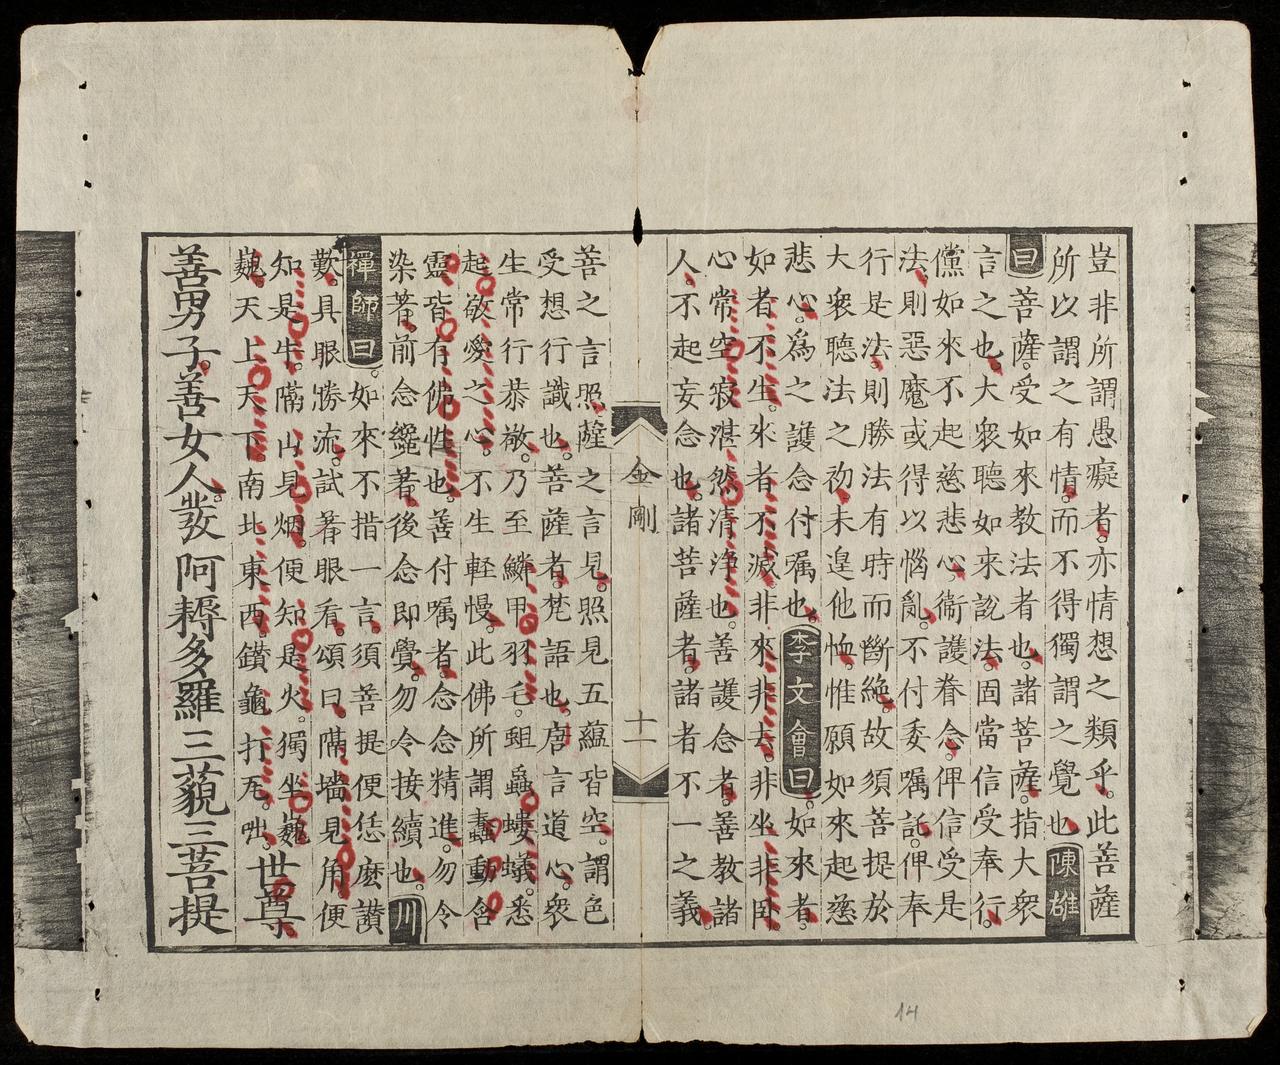 豈非所謂愚癡者亦情想之類乎此菩薩
所以謂之有情而不得獨謂之覺也陳雄
曰菩薩受如來教法者也諸菩薩指大衆
言之也大衆聽如来說法固當信受奉行
儻如來不起慈悲心衞護眷念俾信受是
法則惡魔或得以惱亂不付委囑託俾奉
行是法則勝法有時而斷絶故須菩提於
大衆聴法之初未遑他恤惟願如來起慈
悲心爲之護念付囑也李文會曰如來者
如者不生來者不滅非來非去非坐非卧
心常空寂湛然清浄也善護念者善教諸
人不起妄念也諸菩薩者諸者不一之義
金剛
十一
菩之言照薩之言見照見五蘊皆空謂色
受想行識也菩薩者梵語也唐言道心衆
生常行恭敬乃至鱗甲羽毛蛆蟲螻蟻悉
起敬愛之心不生軽慢此佛所謂蠢動含
靈皆有佛性也善付囑者念念精進勿令
染著前念纔著後念即覺勿令接續也川
禪師曰如來不措一言須菩提便恁麽讃
歎具眼勝流試著眼看頌曰隔墻見角便
知是牛隔山見烟便知是火獨坐巍
巍天上天下南北東西鑚龜打瓦咄世尊
善男子善女人發阿耨多羅三藐三菩提
14